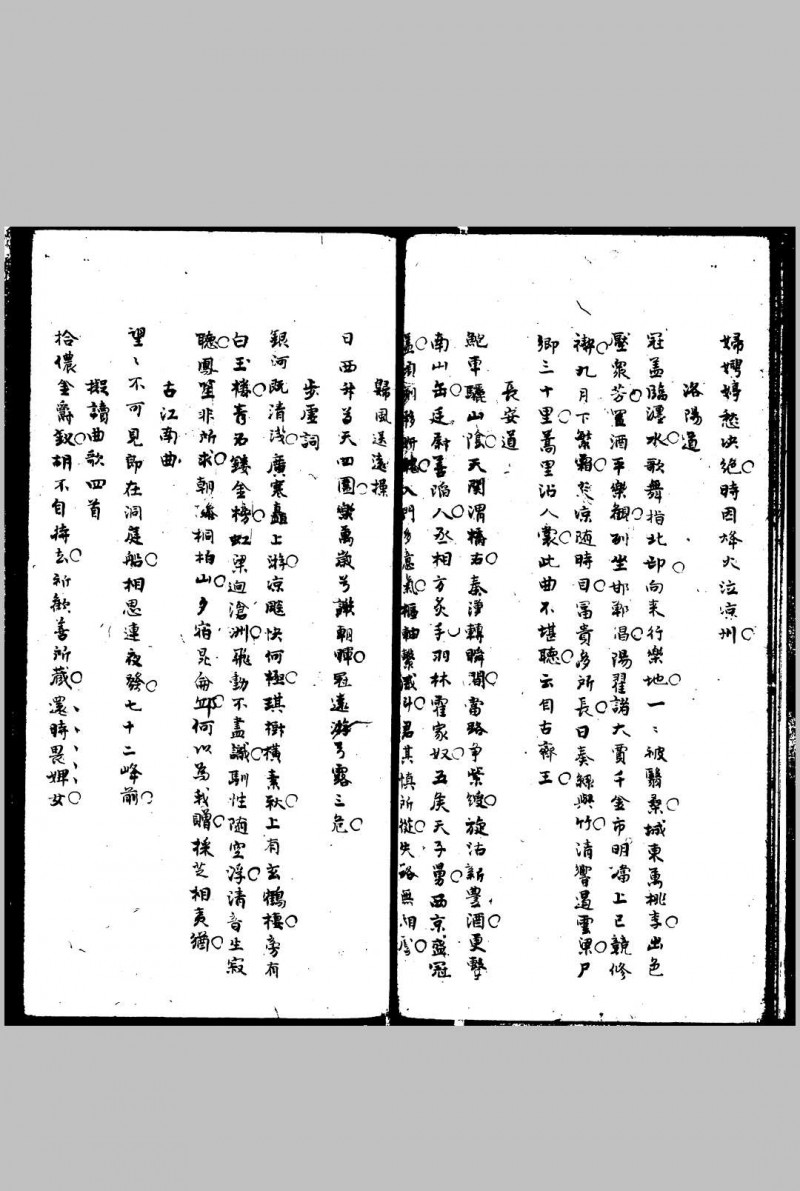 婦娉婷愁决絕時因烽火泣涼州
洛陽道
冠盖臨灃水歌舞指北邙向来行樂地一〻被翳桑城東萬桃李出色
壓衆芳置酒平樂觀列坐邯鄲倡陽翟諸大賈千金市明璫上巳競修
禊九月下繁霜炎涼随時目富貴多所長日奏絲與竹清響遏雲梁尸
鄉三十里蒿里沾人裳此曲不堪聽云自古齊王
長安道
鮑車驪山陰天閣渭橋右秦淨轉瞬間當路爭紫綬旋沽新豐酒更擊
南山缶廷尉善陷人丞相方炙手羽林霍家奴五矦天子舅西京盛冠
盖頃刻移新入門多意氣樞軸繫滅斗君其慎所從失路無相
歸風送遠操
日西升兮天四圓樂萬歲兮讙朝暉冠遠游兮露三危
步虛詞
銀河既清淺廣寒矗上游涼颷快何極琪樹橫素秋上有玄鶴棲旁有
白玉樓青石鏤金榜虹梁迥滄洲飛動不盡識馴性随空浮清音生寂
聽鳳笙非所求朝隮桐柏山夕宿昆侖邱何以為我贈採芝相夷猶
古江南曲
望〻不可見即在洞庭船相思連夜發七十二峰前
擬讀曲歌四首
拾儂金爵釵胡不自持去新歡善所藏還時畏婢女